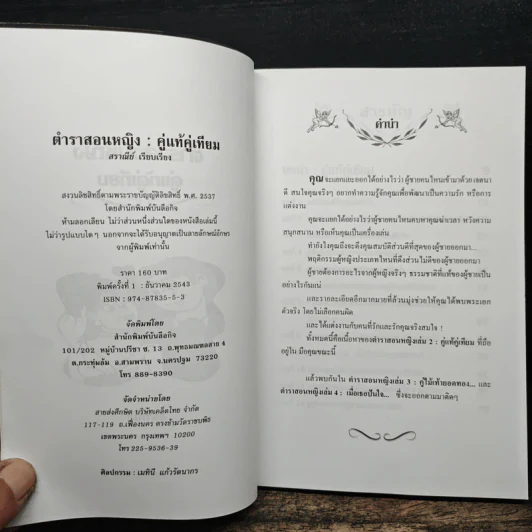 ตำราสอนหญิง : คู่แท้คู่เทียม
สราณีย์ เรียบเรียง
สงวนลิขสิทธิ์ตามพระราชบัญญัติลิขสิทธิ์ พ.ศ. 2537
โดยสำนักพิมพ์บันลือกิจ
ห้ามลอกเลียน ไม่ว่าส่วนหนึ่งส่วนใดของหนังสือเล่มนี้
ไม่ว่ารูปแบบใดๆ นอกจากจะได้รับอนุญาตเป็นลายลักษณ์อักษร
จากผู้พิมพ์เท่านั้น
ราคา 160 บาท
พิมพ์ครั้งที่ 1 : ธันวาคม 2543
ISBN : 974-87835-5-3
จัดพิมพ์โดย
สำนักพิมพ์บันลือกิจ
101/202 หมู่บ้านปรีชา ซ. 13 ถ.พุทธมณฑลสาย 4
ต.กระทุ่มล้ม อ.สามพราน จ.นครปฐม 73220
โทร 889-8390
จัดจำหน่ายโดย
สายส่งศึกษิต บริษัทเคล็ดไทย จำกัด
117-119 ถ.เฟื่องนคร ตรงข้ามวัดราชบพิธ
เขตพระนคร กรุงเทพฯ 10200
โทร 225-9536-39
ศิลปกรรม : เมทินี แก้วรัตนากร
คำนำ
คุณจะแยกแยะออกได้อย่างไรว่า ผู้ชายคนไหนเข้ามาด้วยเจตนา
ดี สนใจคุณจริงๆ อยากทำความรู้จักคุณเพื่อพัฒนาเป็นความรัก หรือการ
แต่งงาน
คุณจะแยกได้อย่างไรว่าผู้ชายคนไหนคบหาคุณฆ่าเวลา หวังความ
สนุกสนาน หรือเห็นคุณเป็นเครื่องเล่น
ทำยังไงคุณถึงจะดึงคุณสมบัติส่วนดีที่สุดของผู้ชายออกมา...
พฤติกรรมผู้หญิงประเภทไหนที่ดึงส่วนไม่ดีของผู้ชายออกมา
ผู้ชายต้องการอะไรจากผู้หญิงจริงๆ ธรรมชาติที่แท้ของผู้ชายเป็น
อย่างไรกันแน่
และรายละเอียดอีกมากมายที่ล้วนมุ่งช่วยให้คุณได้พบพระเอก
ตัวจริง โดยไม่เลือกคนผิด
และได้แต่งงานกับคนที่รักและรักคุณจริงสมใจ !
ทั้งหมดนี้คือเนื้อหาของตำราสอนหญิงเล่ม 2 : คู่แท้คู่เทียม ที่ถือ
อยู่ใน มือคุณขณะนี้
แล้วพบกันใน ตำราสอนหญิงเล่ม 3 : คู่ไม้เท้ายอดทอง... และ
ตำราสอนหญิงเล่ม 4 : เมื่อเธอปันใจ... ซึ่งจะออกตามมาติดๆ